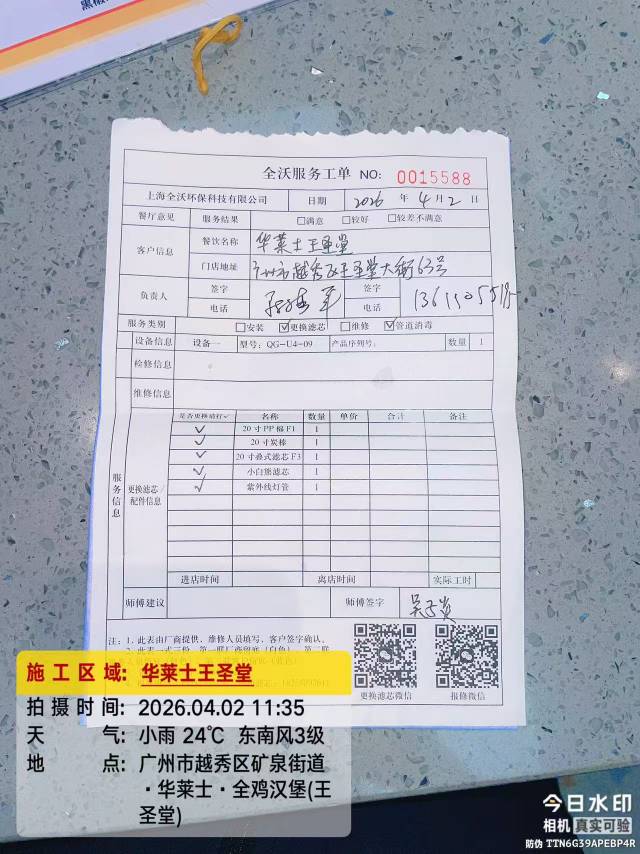 全沃服务工单 NO: 0015588
上海全沃环保科技有限公司 日期 2026 年 4 月 2 日
餐厅意见 服务结果 □满意 □较好 □较差不满意
客户信息 餐饮名称 华莱士王圣堂
门店地址 广州市越秀区王圣堂大街63号
负责人 签字 签字
电话 电话
服务类别 □安装 ☑更换滤芯 □维修 ☑管道消毒
设备信息 设备一 型号: QG-U4-09 产品序列号: 数量 1
检修信息
维修信息
服务信息 更换滤芯/配件信息
是否更换请打✓ 名称 数量 单价 合计 备注
✓ 20寸PP棉F1 1
✓ 20寸炭棒 1
✓ 20寸叠式滤芯F3 1
✓ 小白熊滤芯 1
✓ 紫外线灯管 1
进店时间 离店时间 实际工时
师傅建议 师傅签字
注: 1. 此表由厂商提供、维修人员填写、客户签字确认。
更换滤芯微信 报修微信
施工区域: 华莱士王圣堂
拍摄时间: 2026.04.02 11:35
天气: 小雨 24℃ 东南风3级
地点: 广州市越秀区矿泉街道
·华莱士·全鸡汉堡(王
圣堂)
今日水印
相机 真实可验
防伪 TTN6G39APEBP4R